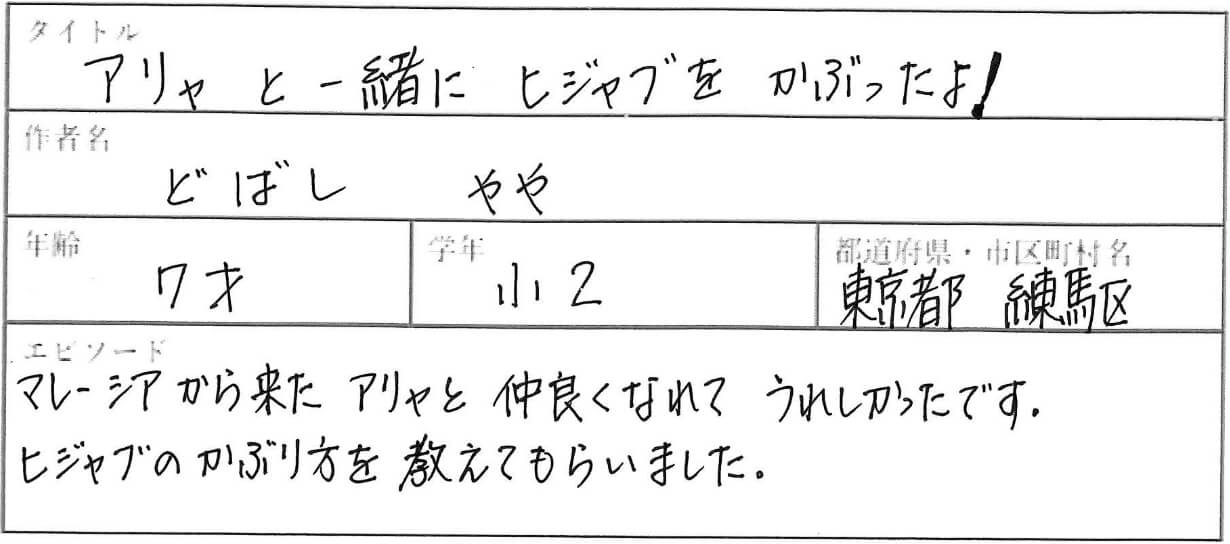 タイトル
アリャと一緒に ヒジャブを かぶったよ!
作者名
どばし やや
年齢 学年 都道府県・市区町村名
7才 小2 東京都 練馬区
エピソード
マレーシアから来た アリャと 仲良くなれて うれしかったです.
ヒジャブのかぶり方を 教えてもらいました。